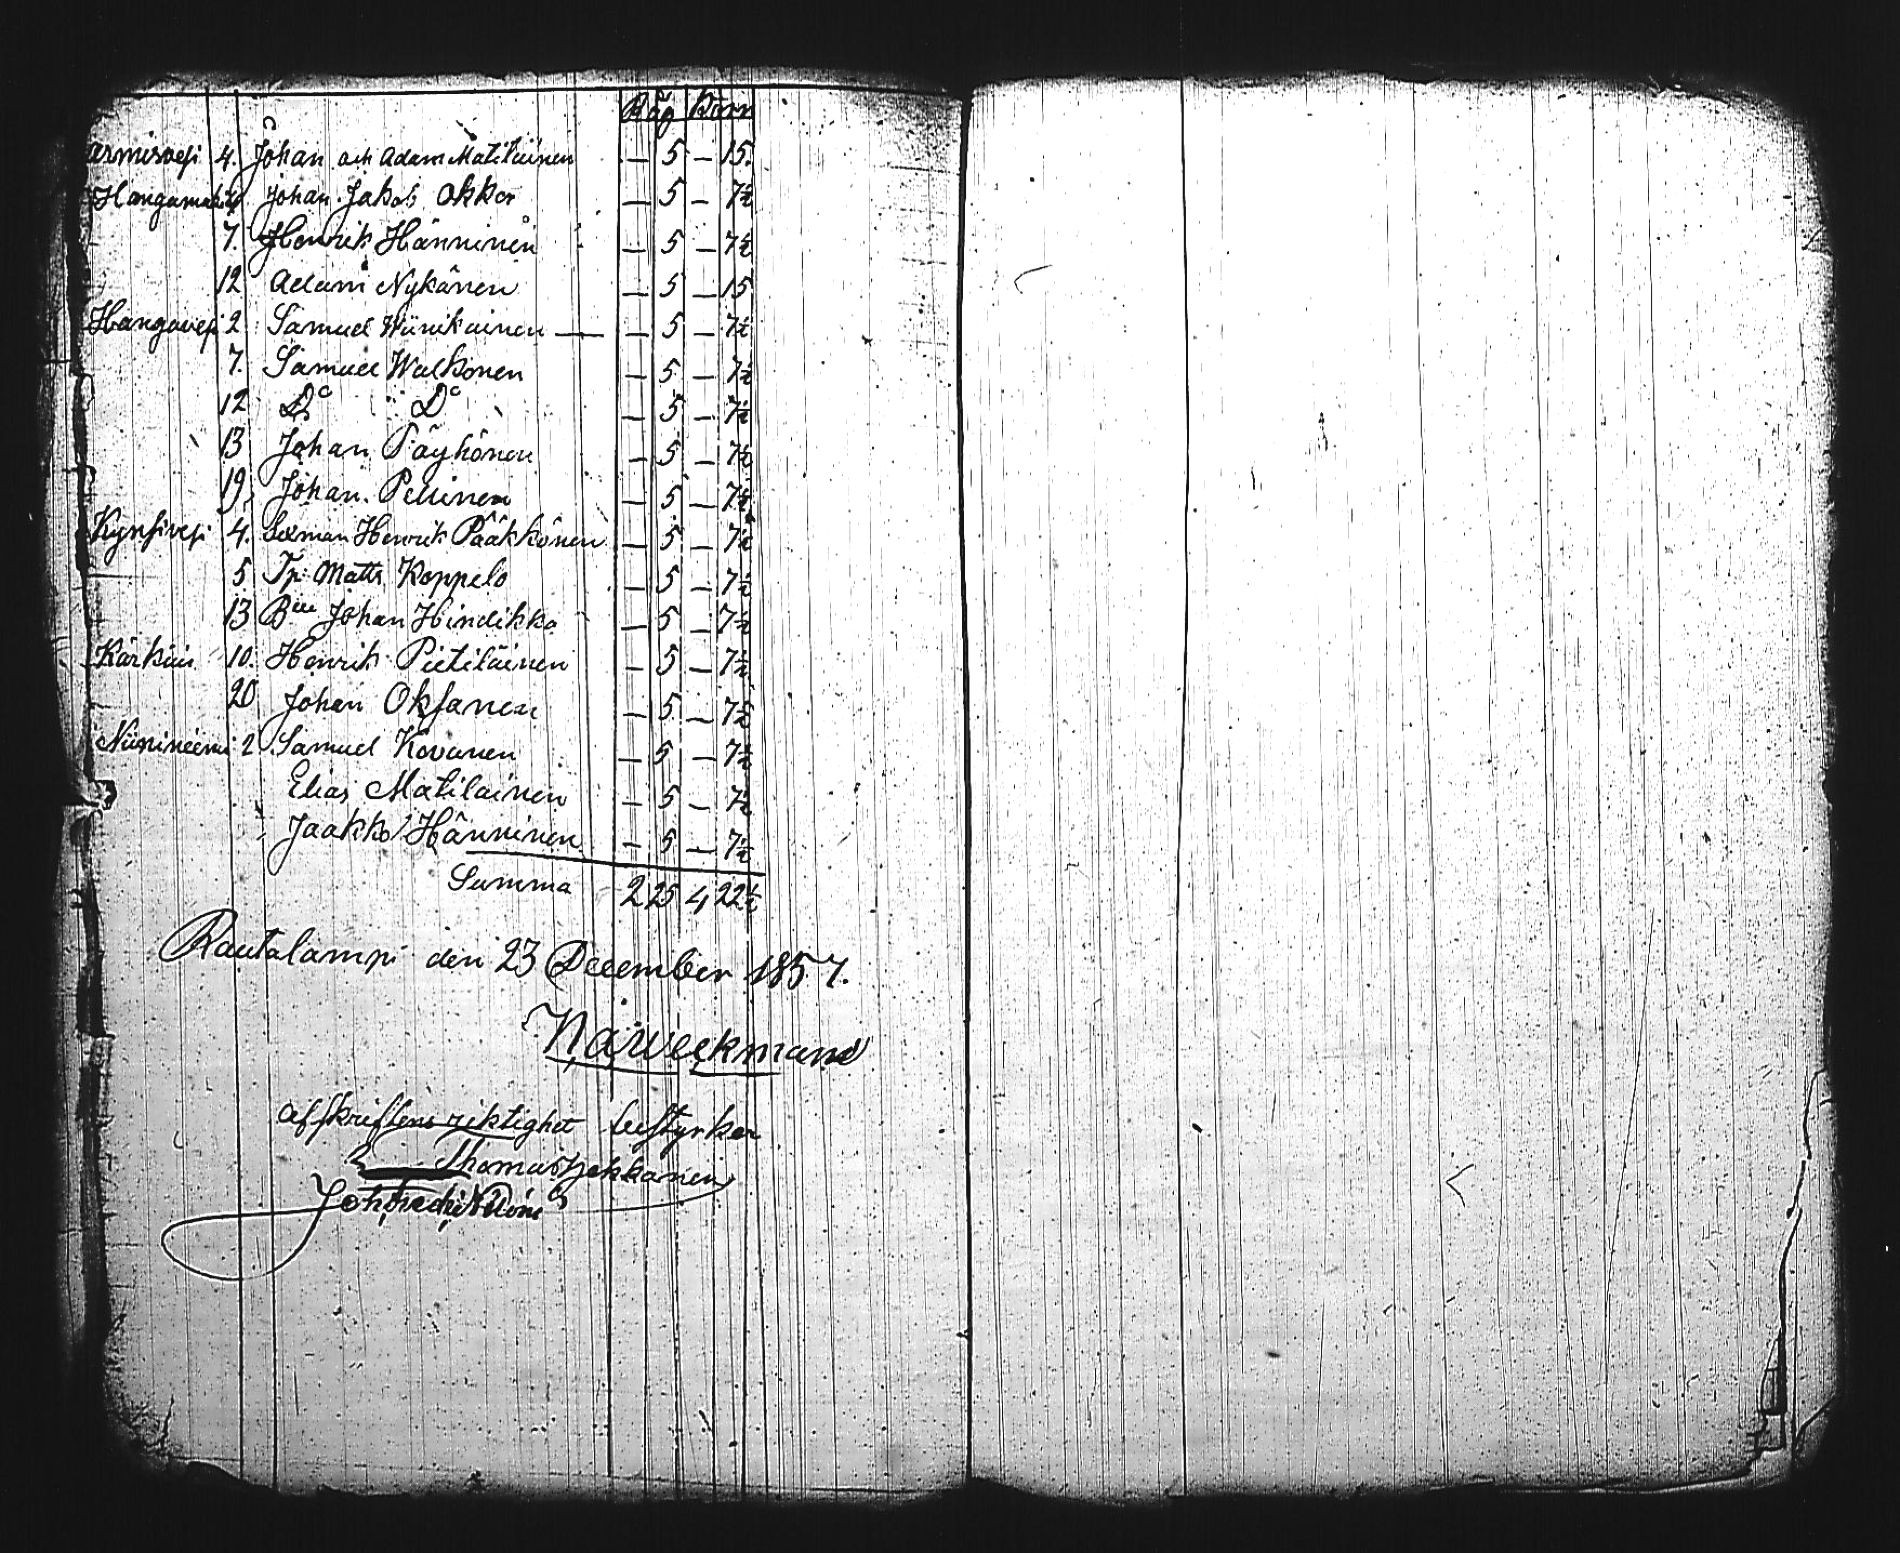 Råg Korn
armisvesi 4. Johan och Adam Matilainen — 5 — 15.
Hangamäki Johan Jakob Okker — 5 — 7½
7. Henrik Hänninen — 5 — 7½
12 Adam Nykänen — 5 — 15
Hangavesi 2 Samuel Wänikainen — 5 — 7½
7. Samuel Walkonen — 5 — 7½
12 Do Do — 5 — 7½
13 Johan Päyhönen — 5 — 7½
19, Johan Pellinen — 5 — 7½
Kynsivesi 4. Sexman Henrik Pääkkönen — 5 — 7½
5 Tp: Matts Koppelo — 5 — 7½
13 Johan Hindikka — 5 — 7½
Kärkäis 10. Henrik Pietiläinen — 5 — 7½
20 Johan Oksanen — 5 — 7½
Niinineemi 2 Samuel Kovanen — 5 — 7½
Elias Matilainen — 5 — 7½
Jaakko Hänninen — 5 — 7½
Summa 2 25 4 22½
Rautalampi den 23 December 1857.
Weckmann
Afskriftens riktighet bestyrker
Thomas Jekkonen